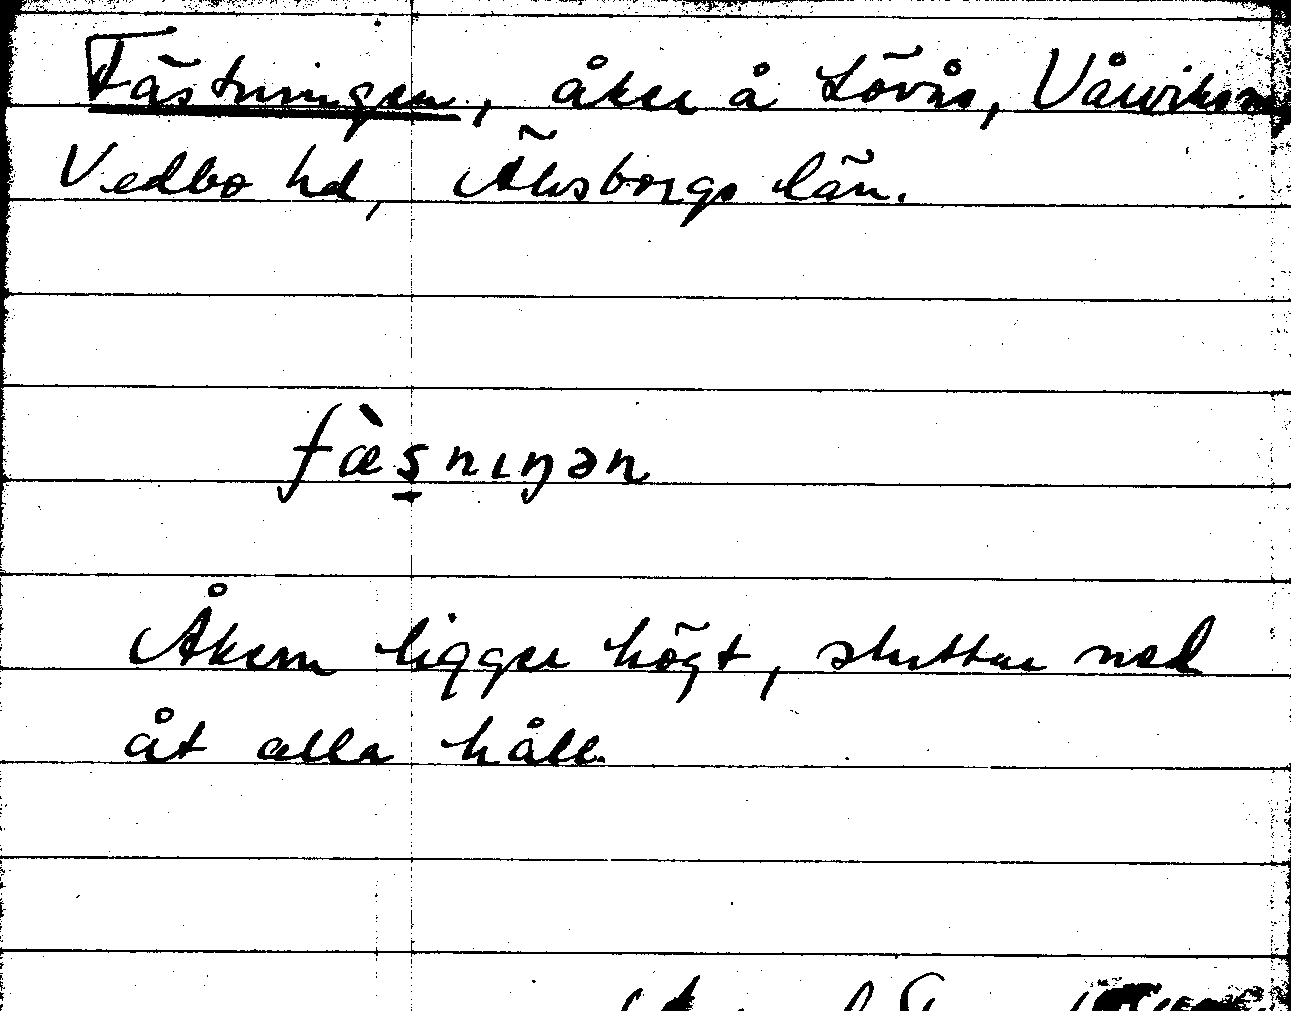 Fästningen, åker å Lövås, Vårviks sn,
Vedbo hd, Älvsborgs län.
fæ̀s̠nıŋən
Åkern ligger högt, sluttar ned
åt alla håll.